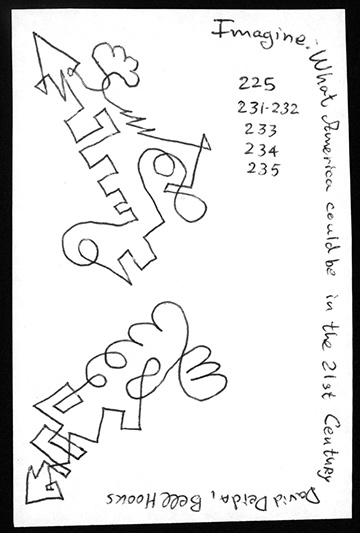 Imagine: What America could be in the 21st Century
225
231-232
233
234
235
David Deida, Bell Hooks